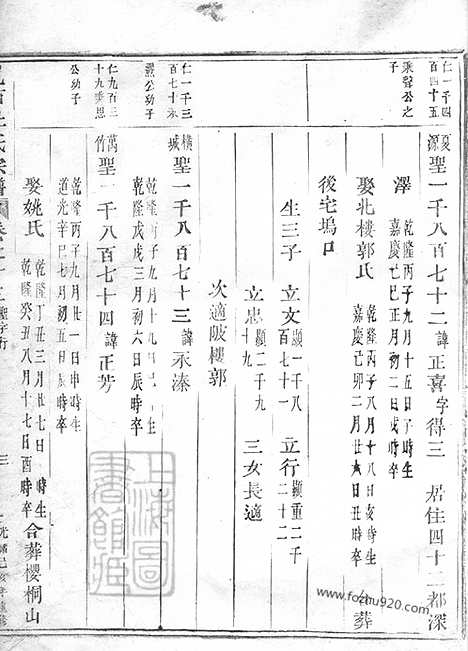 仁一千四
百四十五
秉聲公之
子
夏源
聖一千八百七十二諱正喜字得三 居住四十二都深
澤 乾隆丙子九月十五日子時生
嘉慶己巳正月初二日戌時卒
娶北樓郭氏 乾隆丙子八月十八日亥時生
嘉慶己卯二月廿六日丑時卒
葬
後宅塢口
生三子 立文 顯一千八
百七十一 立行 顯重二千
二十二
立忠 顯二千九
十九 三女長適
次適陂樓郭
仁一千三
百七十
公幼子
橫城
聖一千八百七十三諱永溱
乾隆丙子九月十九日 時生
乾隆戊戌三月初六日辰時卒
仁九百三
十九秉思
公幼子
萬竹
聖一千八百七十四諱正芳
乾隆丙子九月廿一日申時生
道光辛巳七月初二日辰時卒
娶姚氏 乾隆丁丑三月廿七日 時生
乾隆癸丑八月十七日酉時卒
合葬櫻桐山
氏宗譜
三
上海圖
書館藏
www.fozhu920.com